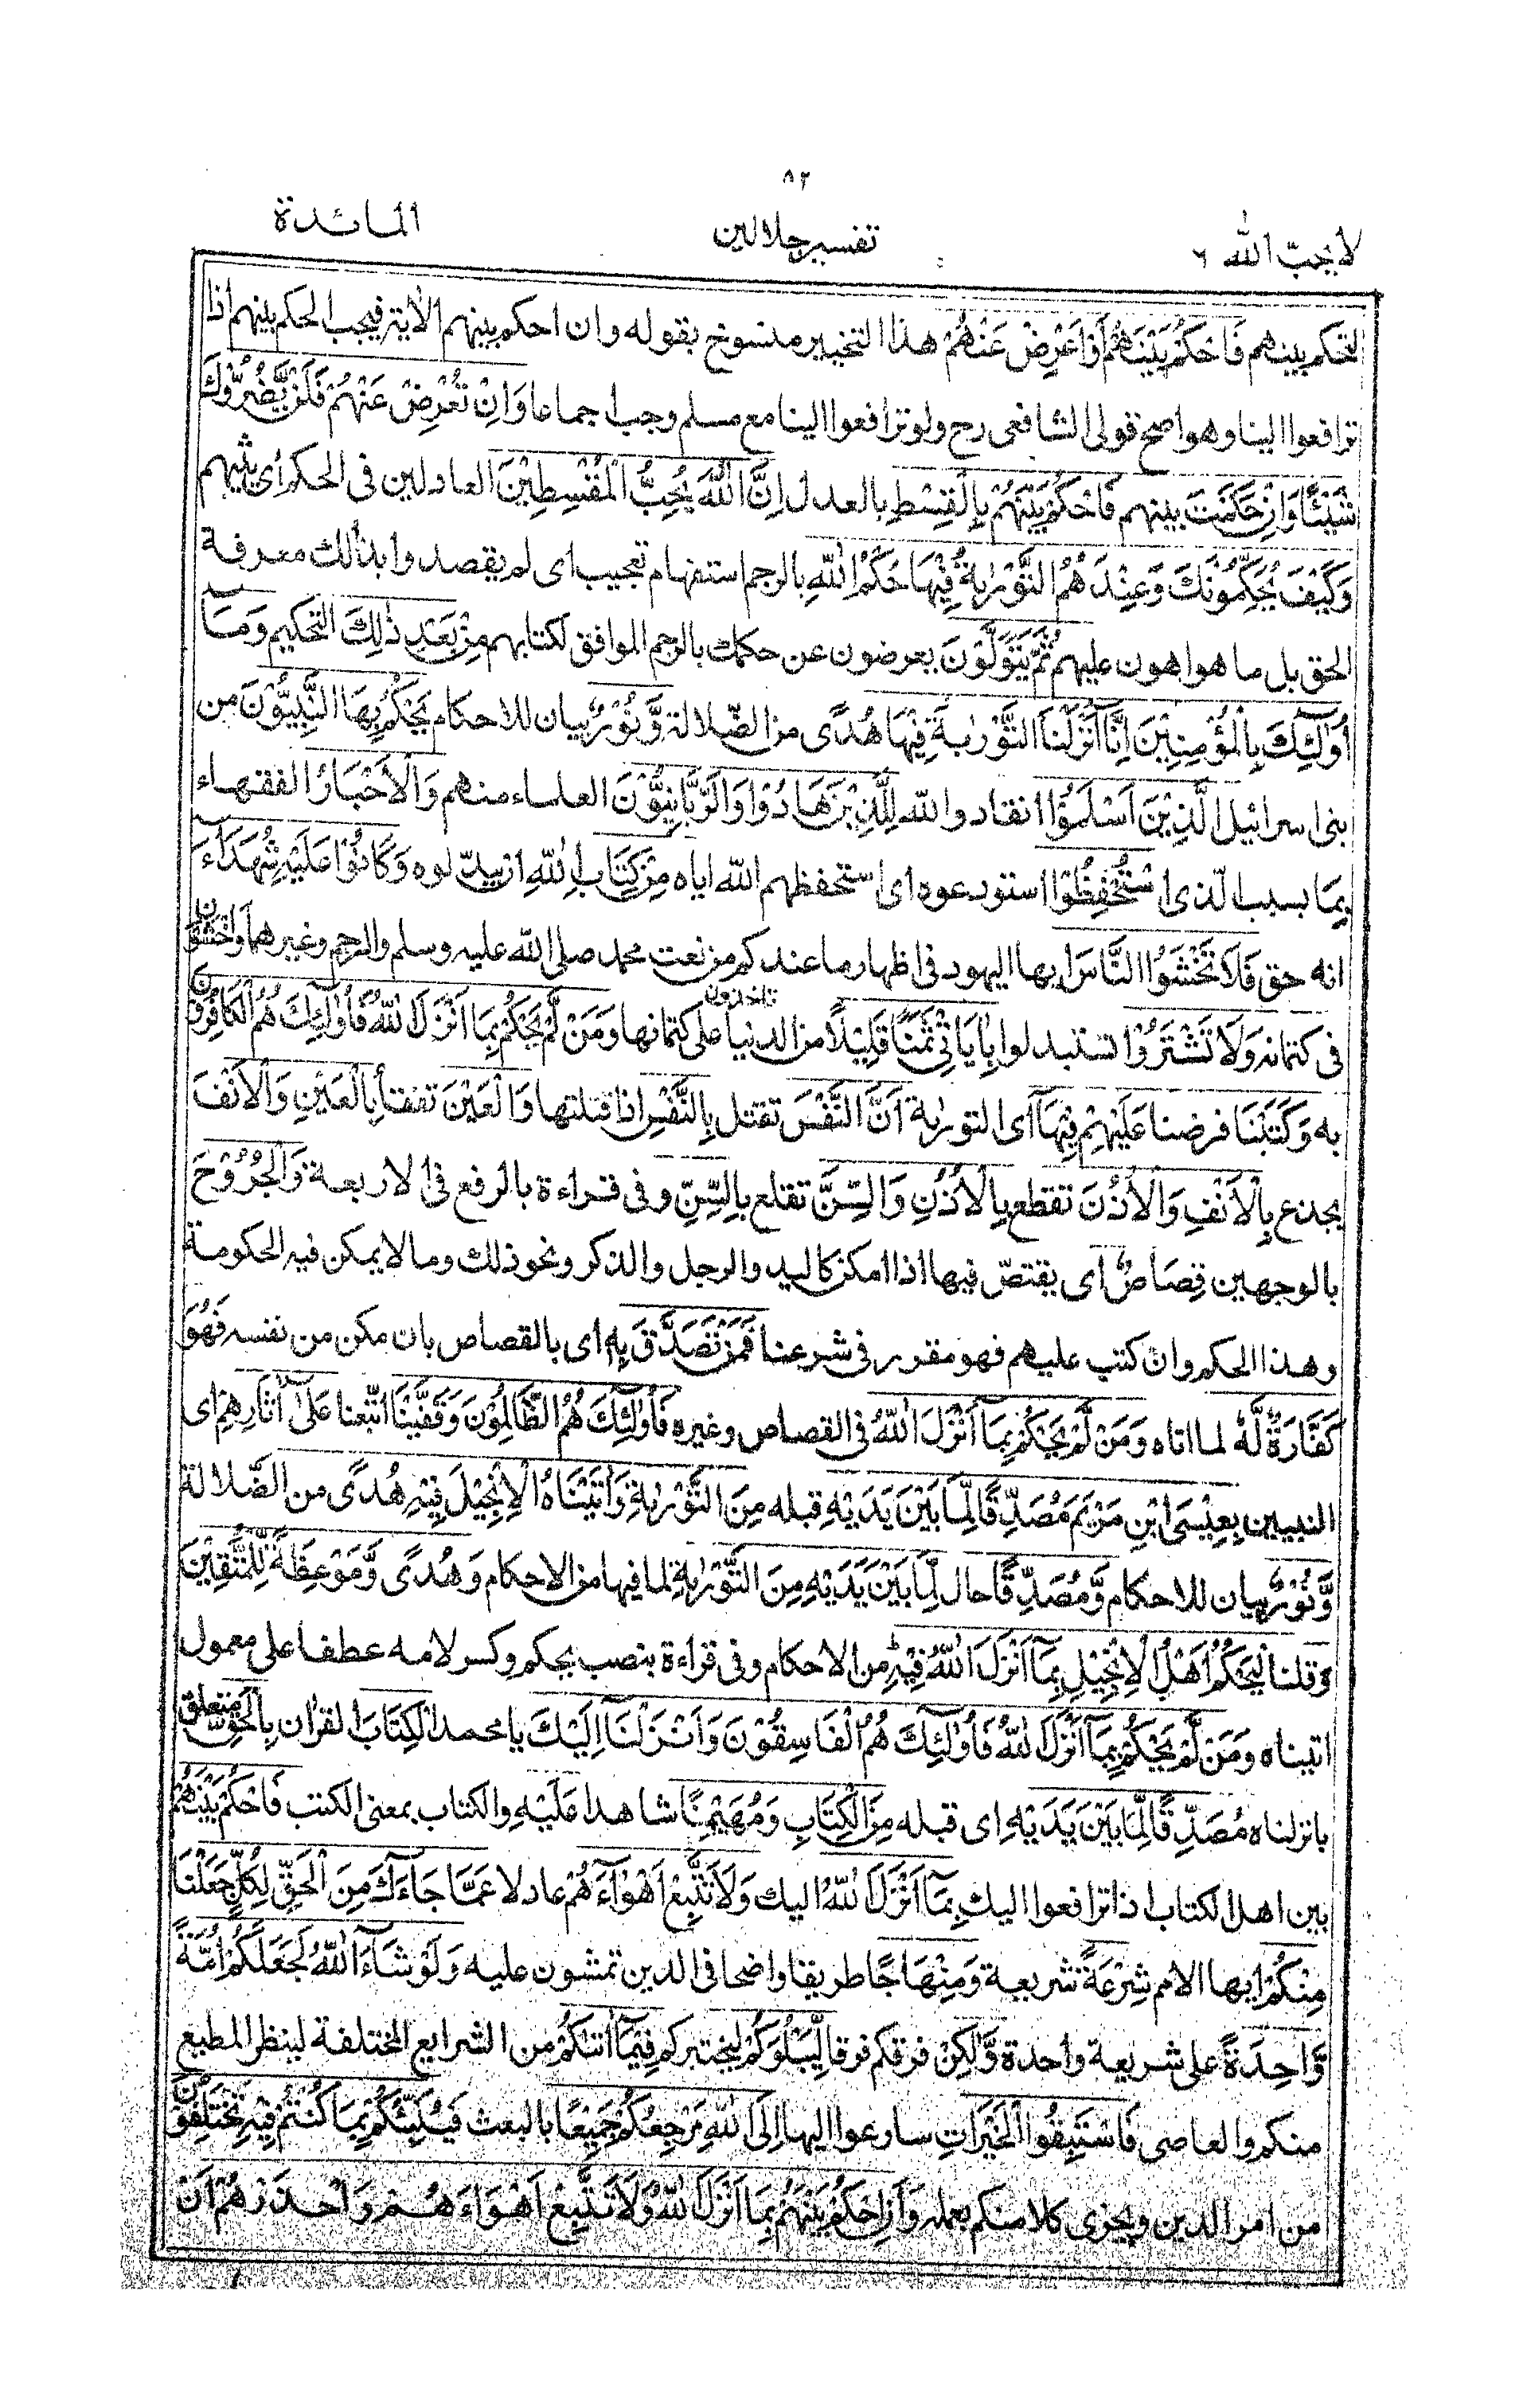 ٨٢
لا يحبّ الله ٦
تفسير جلالين
المائدة
لتحكم بينهم فَاحْكُمْ بَيْنَهُمْ أَوْ أَعْرِضْ عَنْهُمْ هذا التخيير منسوخ بقوله وان احكم بينهم الاٰية فيجب الحكم بينهم اذا
ترافعوا الينا وهو اصح قولى الشافعى رح ولو ترافعوا الينا مع مسلم وجب اجماعا وَاِنْ تُعْرِضْ عَنْهُمْ فَلَنْ يَّضُرُّوْكَ
شَيْئًا وَاِنْ حَكَمْتَ بينهم فَاحْكُمْ بَيْنَهُمْ بِالْقِسْطِ بالعدل اِنَّ اللّٰهَ يُحِبُّ الْمُقْسِطِيْنَ العادلين فى الحكم أى يثيبهم
وَكَيْفَ يُحَكِّمُوْنَكَ وَعِنْدَهُمُ التَّوْرٰىةُ فِيْهَا حُكْمُ اللّٰهِ بالرجم استفهام تعجيب اى لم يقصدوا بذلك معرفة
الحق بل ما هو اهون عليهم ثُمَّ يَتَوَلَّوْنَ يعرضون عن حكمك بالرجم الموافق لكتابهم مِنْ بَعْدِ ذٰلِكَ التحكيم وَمَآ
اُولٰٓئِكَ بِالْمُؤْمِنِيْنَ اِنَّآ اَنْزَلْنَا التَّوْرٰىةَ فِيْهَا هُدًى من الضّلالة وَّنُوْرٌ بيان للاحكام يَحْكُمُ بِهَا النَّبِيُّوْنَ من
بنى اسرائيل الَّذِيْنَ اَسْلَمُوْا انقادوا لله لِلَّذِيْنَ هَادُوْا وَالرَّبَّانِيُّوْنَ العلماء منهم وَالْاَحْبَارُ الفقهاء
بِمَا بسبب الّذى اسْتُحْفِظُوْا استودعوه اى استحفظهم الله اياه مِنْ كِتَابِ اللّٰهِ ان يبدّلوه وَكَانُوْا عَلَيْهِ شُهَدَآءَ
انه حق فَلَا تَخْشَوُا النَّاسَ ايها اليهود فى اظهار ما عندكم من نعت محمد صلى الله عليه وسلم والرجم وغيرهما وَاخْشَوْنِ
فى كتمانه وَلَا تَشْتَرُوْا تستبدلوا بِاٰيَاتِيْ ثَمَنًا قَلِيْلًا من الدنيا تاخذون على كتمانها وَمَنْ لَّمْ يَحْكُمْ بِمَا اَنْزَلَ اللّٰهُ فَاُولٰٓئِكَ هُمُ الْكَافِرُوْنَ
به وَكَتَبْنَا فرضنا عَلَيْهِمْ فِيْهَآ اى التورٰىة اَنَّ النَّفْسَ تقتل بِالنَّفْسِ اذا قتلتها وَالْعَيْنَ تفقأ بِالْعَيْنِ وَالْاَنْفَ
يجدع بِالْاَنْفِ وَالْاُذُنَ تقطع بِالْاُذُنِ وَالسِّنَّ تقلع بِالسِّنِّ وفى قراءة بالرفع فى الاربعة وَالْجُرُوْحَ
بالوجهين قِصَاصٌ اى يقتصّ فيها اذا امكن كاليد والرجل والذكر ونحو ذلك وما لا يمكن فيه الحكومة
وهذا الحكم وان كتب عليهم فهو مقرر فى شرعنا فَمَنْ تَصَدَّقَ بِهٖ اى بالقصاص بان مكن من نفسه فَهُوَ
كَفَّارَةٌ لَّهٗ لما اتاه وَمَنْ لَّمْ يَحْكُمْ بِمَآ اَنْزَلَ اللّٰهُ فى القصاص وغيره فَاُولٰٓئِكَ هُمُ الظَّالِمُوْنَ وَقَفَّيْنَا اتّبعنا عَلٰى اٰثَارِهِمْ اى
النبيين بِعِيْسَى ابْنِ مَرْيَمَ مُصَدِّقًا لِّمَا بَيْنَ يَدَيْهِ قبله مِنَ التَّوْرٰىةِ وَاٰتَيْنَاهُ الْاِنْجِيْلَ فِيْهِ هُدًى من الضّلالة
وَّنُوْرٌ بيان للاحكام وَّمُصَدِّقًا حال لِّمَا بَيْنَ يَدَيْهِ مِنَ التَّوْرٰىةِ لما فيها من الاحكام وَهُدًى وَّمَوْعِظَةً لِّلْمُتَّقِيْنَ
وقلنا لْيَحْكُمْ اَهْلُ الْاِنْجِيْلِ بِمَآ اَنْزَلَ اللّٰهُ فِيْهِ من الاحكام وفى قراءة بنصب يحكم وكسر لامه عطفا على معمول
اتيناه وَمَنْ لَّمْ يَحْكُمْ بِمَآ اَنْزَلَ اللّٰهُ فَاُولٰٓئِكَ هُمُ الْفَاسِقُوْنَ وَاَنْزَلْنَآ اِلَيْكَ يا محمد الْكِتَابَ القراٰن بِالْحَقِّ متعلق
بانزلناه مُصَدِّقًا لِّمَا بَيْنَ يَدَيْهِ اى قبله مِنَ الْكِتَابِ وَمُهَيْمِنًا شاهدا عَلَيْهِ والكتاب بمعنى الكتب فَاحْكُمْ بَيْنَهُمْ
بين اهل الكتاب اذا ترافعوا اليك بِمَآ اَنْزَلَ اللّٰهُ اليك وَلَا تَتَّبِعْ اَهْوَآءَهُمْ عادلا عَمَّا جَآءَكَ مِنَ الْحَقِّ لِكُلٍّ جَعَلْنَا
مِنْكُمْ ايها الامم شِرْعَةً شريعة وَمِنْهَاجًا طريقا واضحا فى الدين تمشون عليه وَلَوْ شَآءَ اللّٰهُ لَجَعَلَكُمْ اُمَّةً
وَّاحِدَةً على شريعة واحدة وَّلٰكِنْ فرقكم فرقا لِّيَبْلُوَكُمْ ليختبركم فِيْمَآ اٰتٰىكُمْ من الشرايع المختلفة لينظر المطيع
منكم والعاصى فَاسْتَبِقُوا الْخَيْرَاتِ سارعوا اليها اِلَى اللّٰهِ مَرْجِعُكُمْ جَمِيْعًا بالبعث فَيُنَبِّئُكُمْ بِمَا كُنْتُمْ فِيْهِ تَخْتَلِفُوْنَ
من امر الدين ويجزى كلا منكم بعمله وَاَنِ احْكُمْ بَيْنَهُمْ بِمَا اَنْزَلَ اللّٰهُ وَلَا تَتَّبِعْ اَهْوَاءَهُمْ وَاحْذَرْهُمْ اَنْ